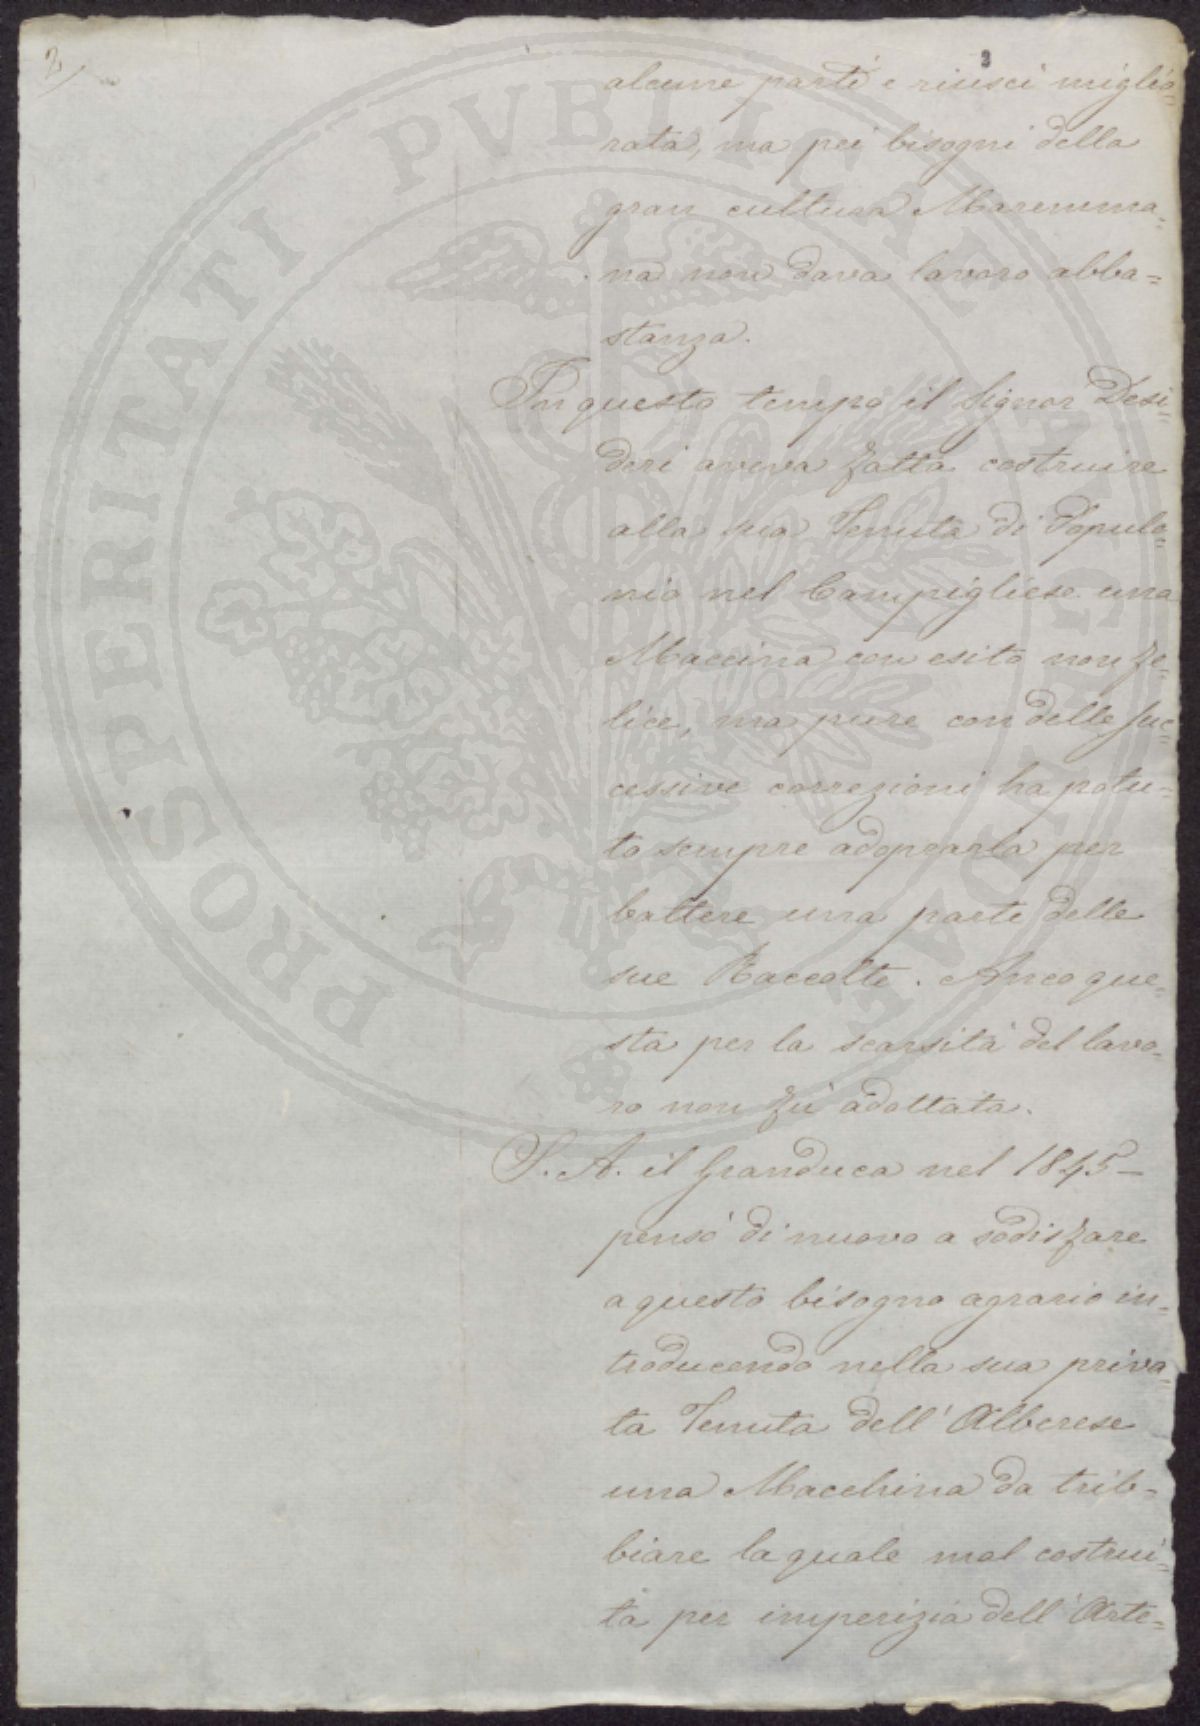 2
3
alcune parti e riuscì miglio=
rata, ma pei bisogni della
gran cultura Maremma=
na non dava lavoro abba=
stanza.
In questo tempo il Signor Desi=
deri aveva fatta costruire
alla sua Tenuta di Populo=
nio nel Campigliese una
Maccina con esito non fe=
lice, ma pure con delle suc=
cessive correzioni ha potu=
to sempre adoprarla per
battere una parte delle
sue Raccolte. Anco que=
sta per la scarsità del lavo=
ro non fù adottata.
S. A. il Granduca nel 1845 -
pensò di nuovo a sodisfare
a questo bisogno agrario in=
troducendo nella sua priva=
ta Tenuta dell' Alberese
una Macchina da trib=
biare la quale mal costrui=
ta per imperizia dell' Arte=
PROSPERITATI PVBLICAE AVGENDAE